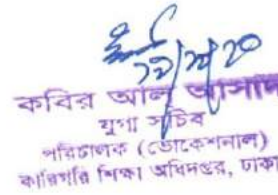 কবির আল আসাদ
যুগ্ম সচিব
পরিচালক (ভোকেশনাল)
কারিগরি শিক্ষা অধিদপ্তর, ঢাকা